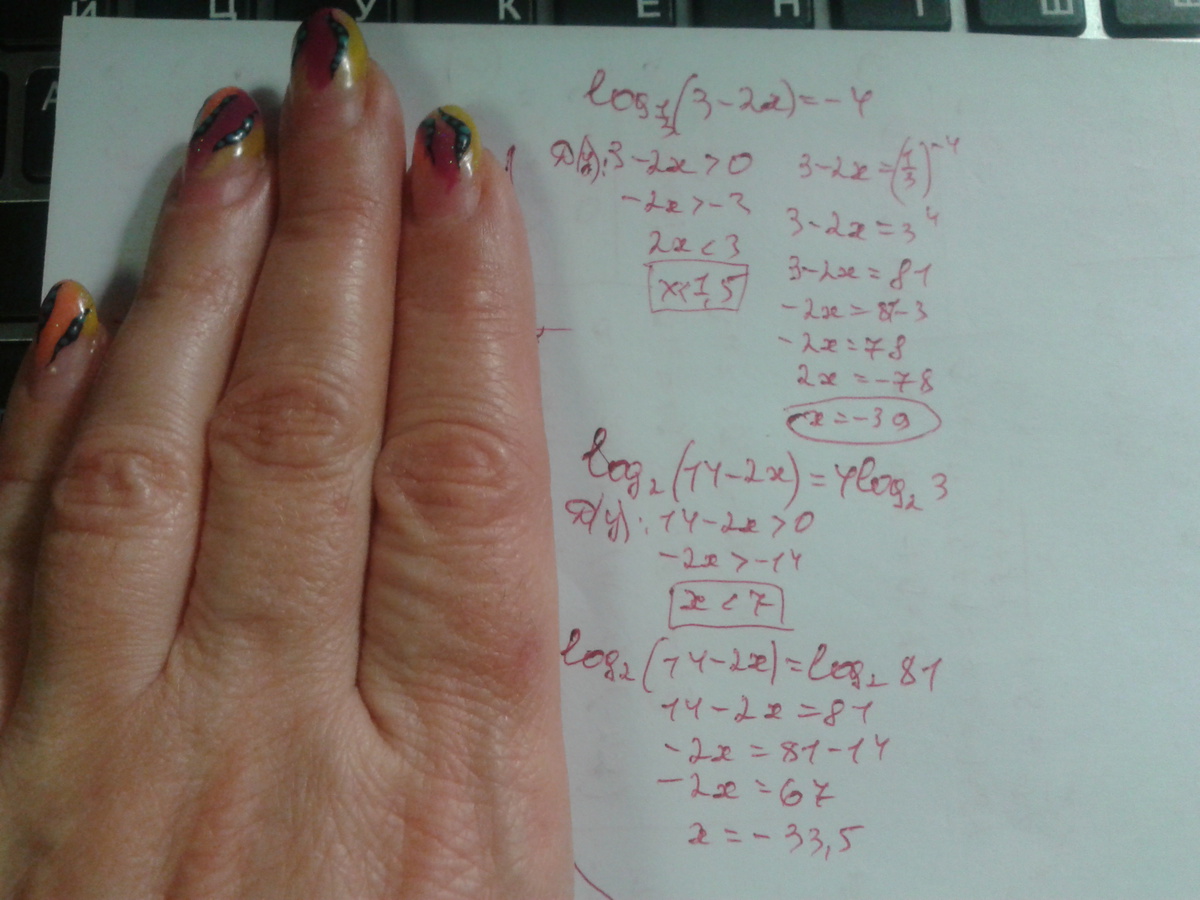 Й Ц У К Е Н Г Ш
А
log₁/₃(3-2x)=-4
Д(у): 3-2x>0
-2x>-3
2x<3
x<1,5
3-2x=(1/3)⁻⁴
3-2x=3⁴
3-2x=81
-2x=81-3
-2x=78
2x=-78
x=-39
log₂(14-2x)=4log₂3
Д(у): 14-2x>0
-2x>-14
x<7
log₂(14-2x)=log₂81
14-2x=81
-2x=81-14
-2x=67
x=-33,5